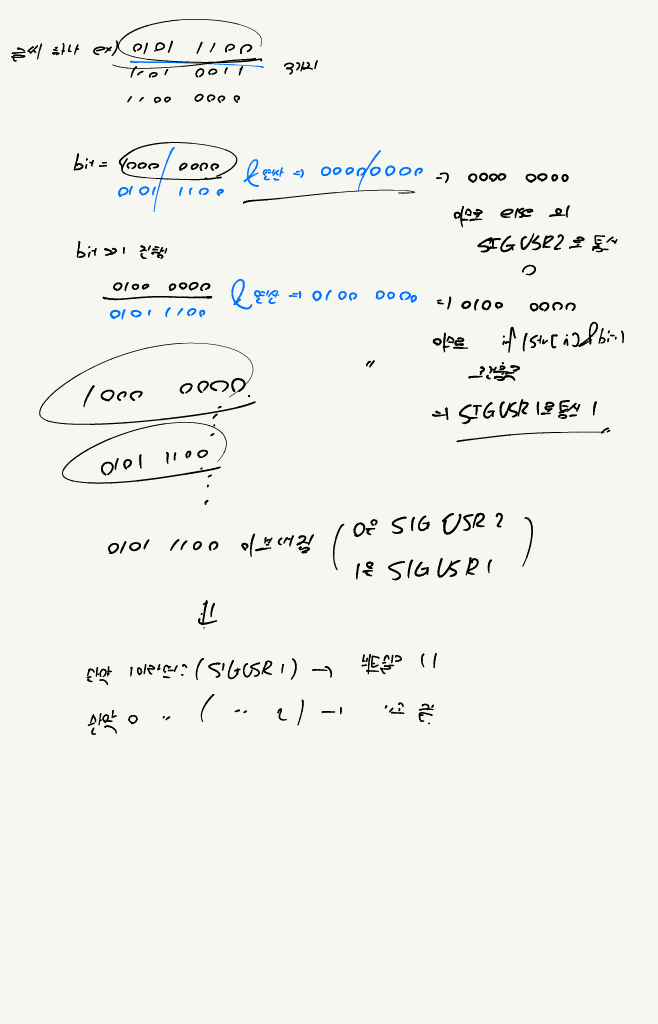 글씨 하나 ex) 0101 1100
1101 0011
1100 0000
bit = 1000 0000 & 연산 => 0000/0000 => 0000 0000
0101 1100
이므로 else 의
SIGUSR2로 통신
0
bit >> 1 진행
0100 0000 & 연산 => 0100 0000 => 0100 0000
0101 1100
이므로 if (str[i] & bit)
=> SIGUSR1로 통신 1
1000 0000
0101 1100
0101 1100 이 보내짐
0은 SIG USR 2
1은 SIG USR 1
만약 1이라면? (SIGUSR1) →
만약 0 〃 ( 〃 2) →